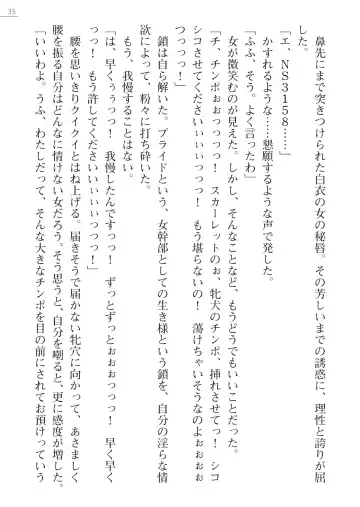 35
鼻先にまで突きつけられた白衣の女の秘唇。その芳しいまでの誘惑に、理性と誇りが屈
した。
「エ、NS3158……」
かすれるような……懇願するような声で発した。
「ふふ、そう。よく言ったわ」
女が微笑むのが見えた。しかし、そんなことなど、もうどうでもいいことだった。
「チ、チンポおぉっっっ！　スカーレットのぉ、牝犬のチンポ、挿れさせてっ！　シコ
シコさせてくださいぃぃぃつつっ！　もう堪らないのぉっ！　蕩けちゃいそうなのよぉぉぉぉ
つっっっ！」
鎖は自ら解いた。プライドという、女幹部としての生き様という鎖を、自分の淫らな情
欲によって、粉々に打ち砕いた。
もう、我慢することはない。
「は、早くぅぅっっ！　我慢したんですっっ！　ずっとずっとぉぉぉっっっ！　早く早く
っっ！　もう許してくださいぃぃぃっっっ！」
腰を思いきりクイクイとはね上げる。届きそうで届かない牝穴に向かって、あさましく
腰を振る自分はどんなに情けない女だろう。そう思うと、自分を嘲ると、更に感度が増した。
「いいわよ。うふ、わたしだって、そんな大きなチンポを目の前にされてお預けっていう